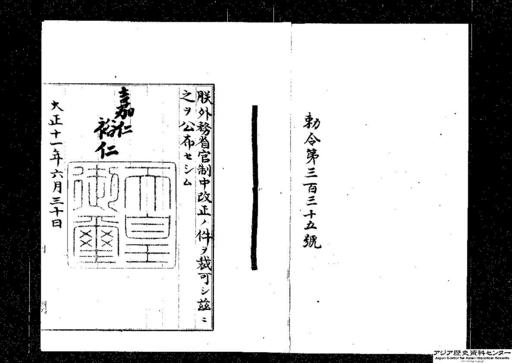 勅令第三百三十五號
朕外務省官制中改正ノ件ヲ裁可シ茲ニ
之ヲ公布セシム
嘉仁
裕仁
天皇
御璽
大正十一年六月三十日
アジア歴史資料センター
Japan Center for Asian Historical Records